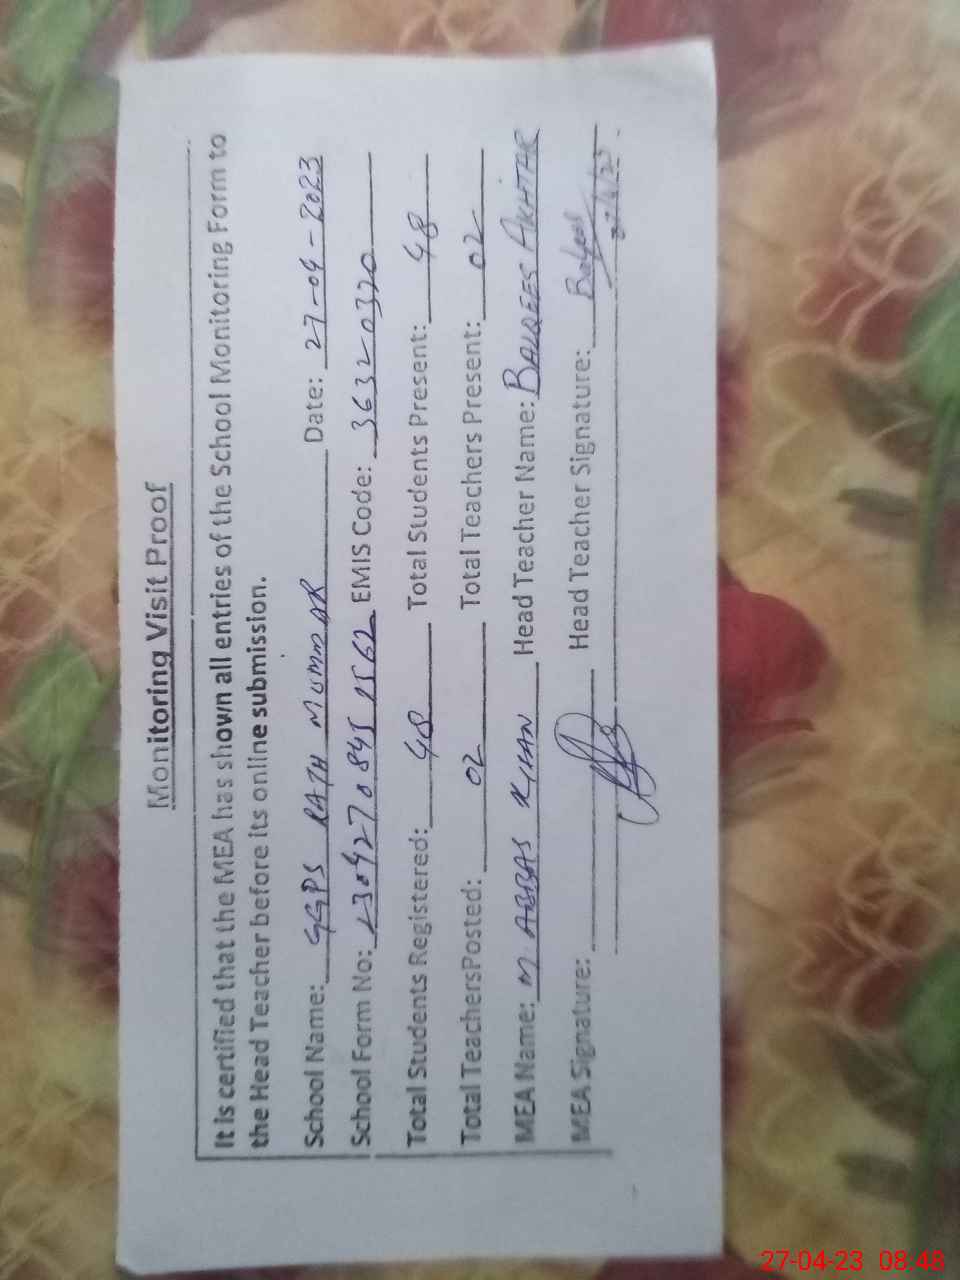 Monitoring Visit Proof
It is certified that the MEA has shown all entries of the School Monitoring Form to
the Head Teacher before its online submission.
School Name: GGPS RATH MUMMAR Date: 27-04-2023
School Form No: 23042708451562 EMIS Code: 36320320
Total Students Registered: 48 Total Students Present: 48
Total TeachersPosted: 02 Total Teachers Present: 02
MEA Name: M ABBAS KHAN Head Teacher Name: BALQEES AKHTAR
MEA Signature: Head Teacher Signature:
27-04-23 08:48